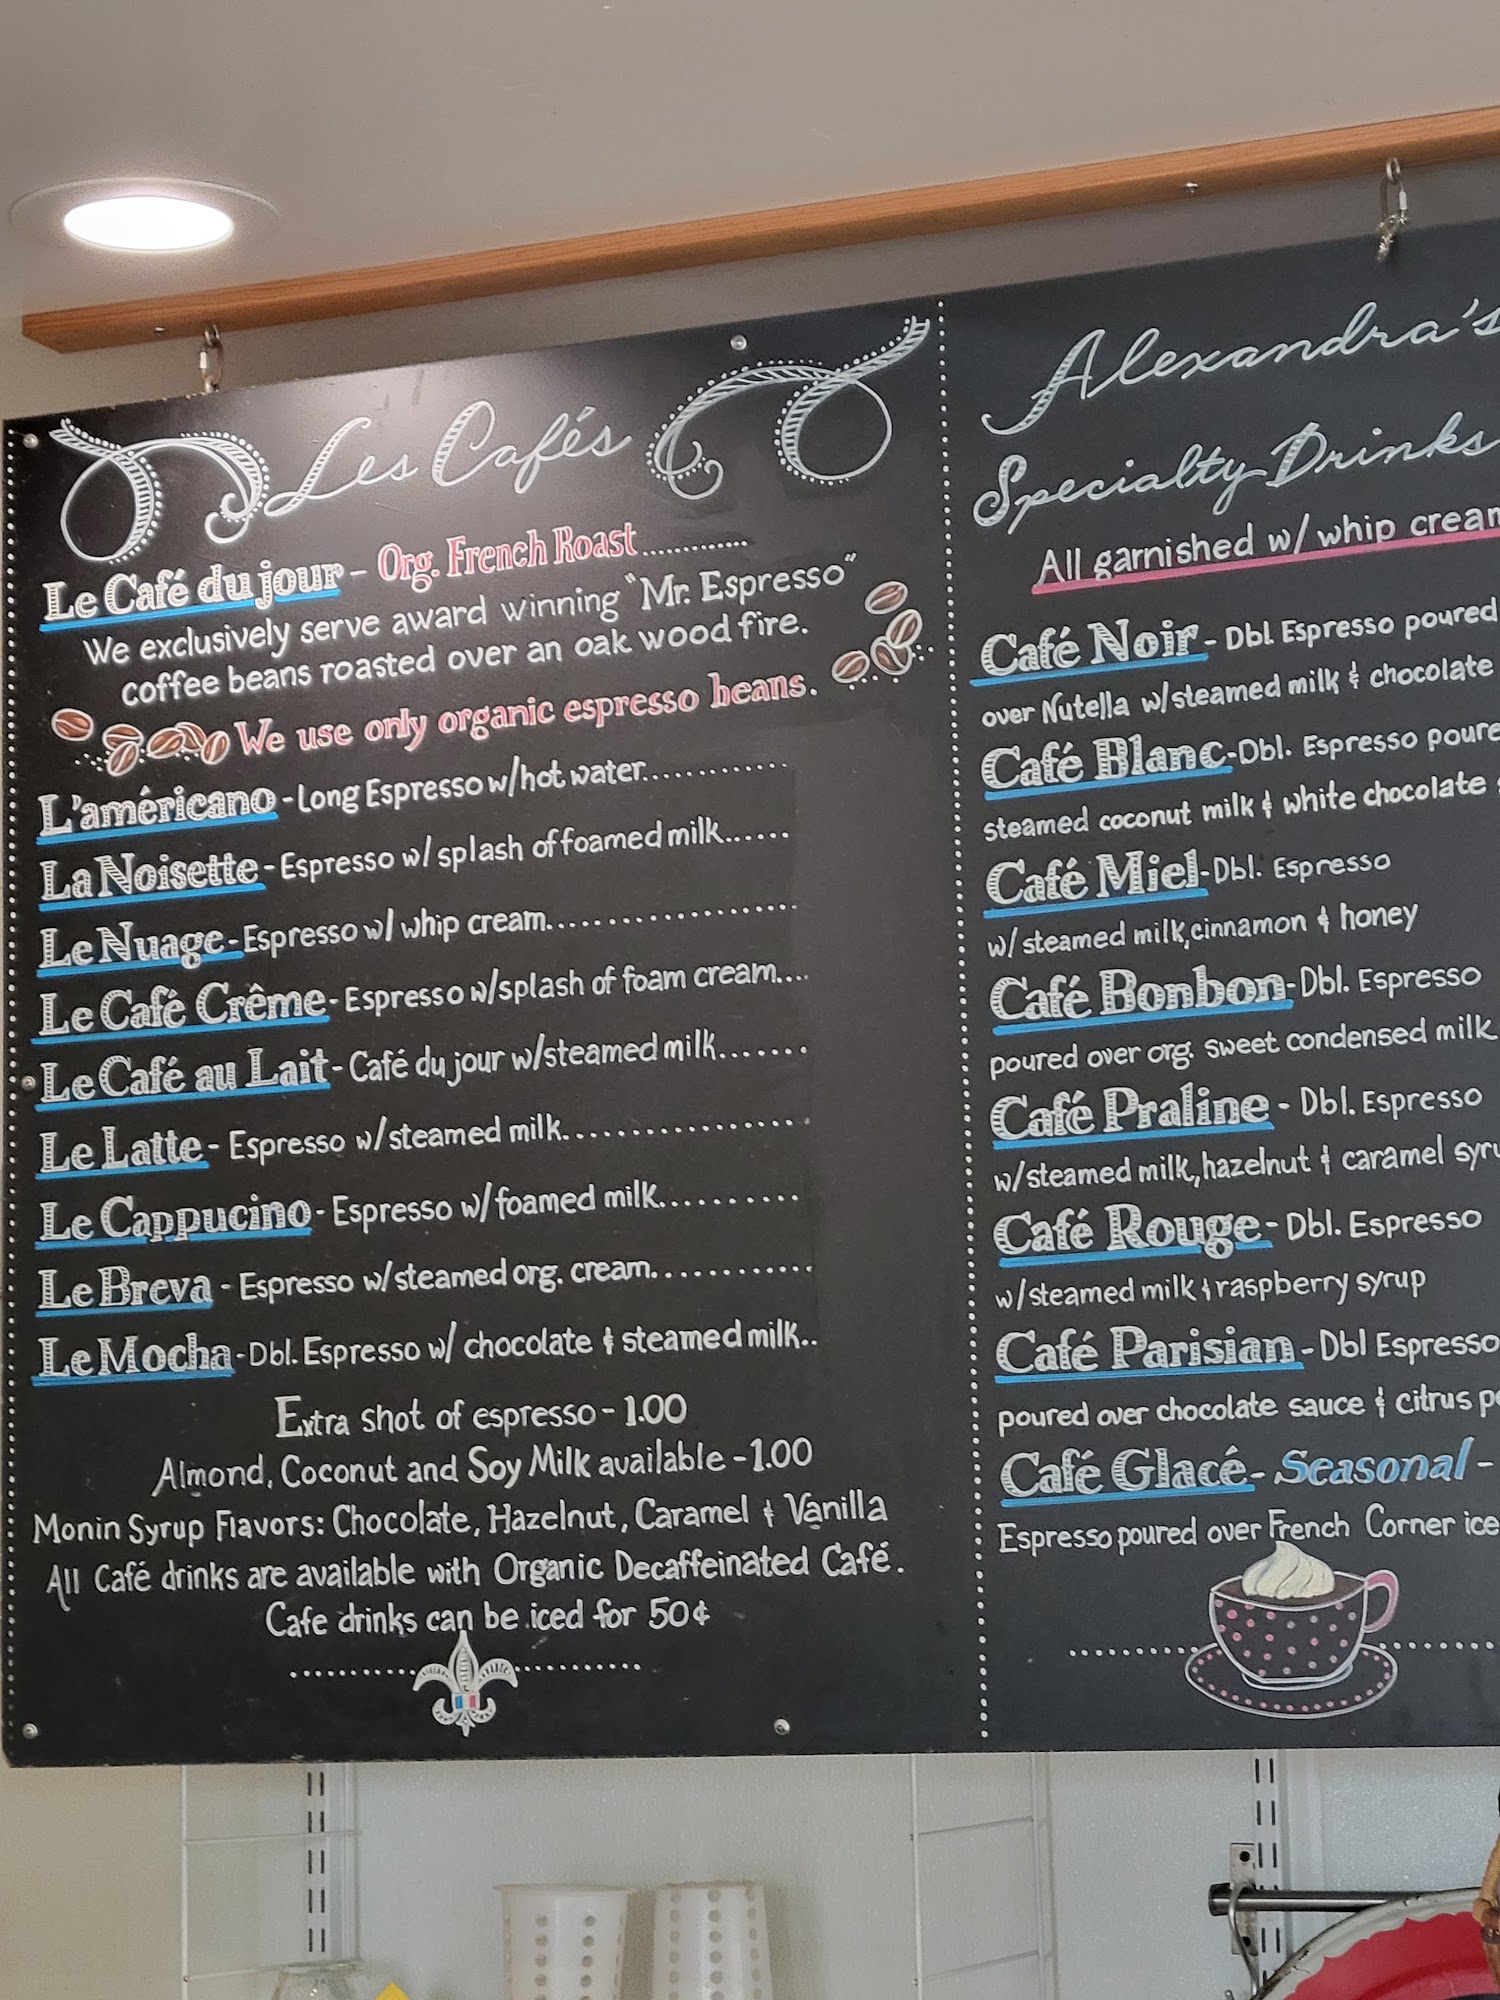 Les Cafés
Le Café du jour - Org. French Roast.............
We exclusively serve award winning "Mr. Espresso"
coffee beans roasted over an oak wood fire.
We use only organic espresso beans.
L'américano - Long Espresso w/hot water..............
La Noisette - Espresso w/ splash of foamed milk......
Le Nuage - Espresso w/ whip cream....................
Le Café Crême - Espresso w/splash of foam cream....
Le Café au Lait - Café du jour w/steamed milk.......
Le Latte - Espresso w/steamed milk....................
Le Cappucino - Espresso w/foamed milk..........
Le Breva - Espresso w/steamed org. cream.............
Le Mocha - Dbl. Espresso w/ chocolate & steamed milk..
Extra shot of espresso - 1.00
Almond, Coconut and Soy Milk available - 1.00
Monin Syrup Flavors: Chocolate, Hazelnut, Caramel & Vanilla
All Café drinks are available with Organic Decaffeinated Café.
Cafe drinks can be iced for 50¢
Alexandra's
Specialty Drinks
All garnished w/ whip cream
Café Noir - Dbl. Espresso poured
over Nutella w/steamed milk & chocolate
Café Blanc - Dbl. Espresso
steamed coconut milk & white chocolate
Café Miel - Dbl. Espresso
w/ steamed milk, cinnamon & honey
Café Bonbon - Dbl. Espresso
poured over org. sweet condensed milk
Café Praline - Dbl. Espresso
w/steamed milk, hazelnut & caramel
Café Rouge - Dbl. Espresso
w/steamed milk & raspberry syrup
Café Parisian - Dbl Espresso
poured over chocolate sauce & citrus
Café Glacé - Seasonal -
Espresso poured over French Corner ice